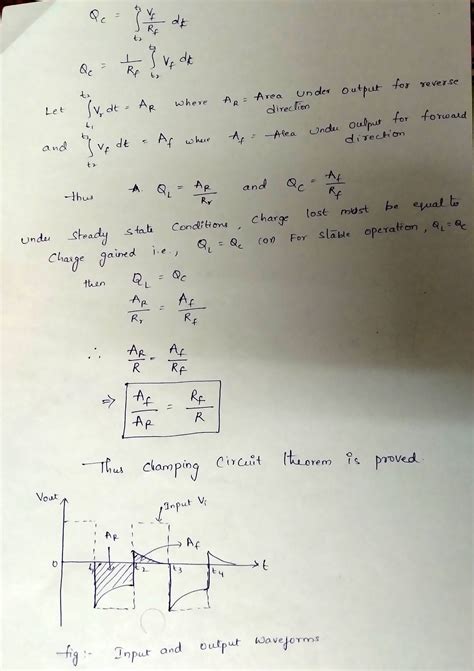 Qc = ∫ t2 t3 Vf/Rf dt
Qc = 1/Rf ∫ t2 t3 Vf dt
Let ∫ t1 t2 Vr dt = AR where AR = Area under output for reverse direction
and ∫ t2 t3 Vf dt = Af where Af = Area under output for forward direction
Thus A. QL = AR/Rr and Qc = Af/Rf
Under Steady state Conditions, Charge lost must be equal to
Charge gained i.e., QL = Qc (or) For stable operation, QL = Qc
then QL = Qc
AR/Rr = Af/Rf
∴ AR/R = Af/Rf
⇒ Af/AR = Rf/R
Thus clamping Circuit theorem is proved.
Vout
Input Vi
AR
Af
0 t1 t2 t3 t4 t
fig:- Input and output Waveforms